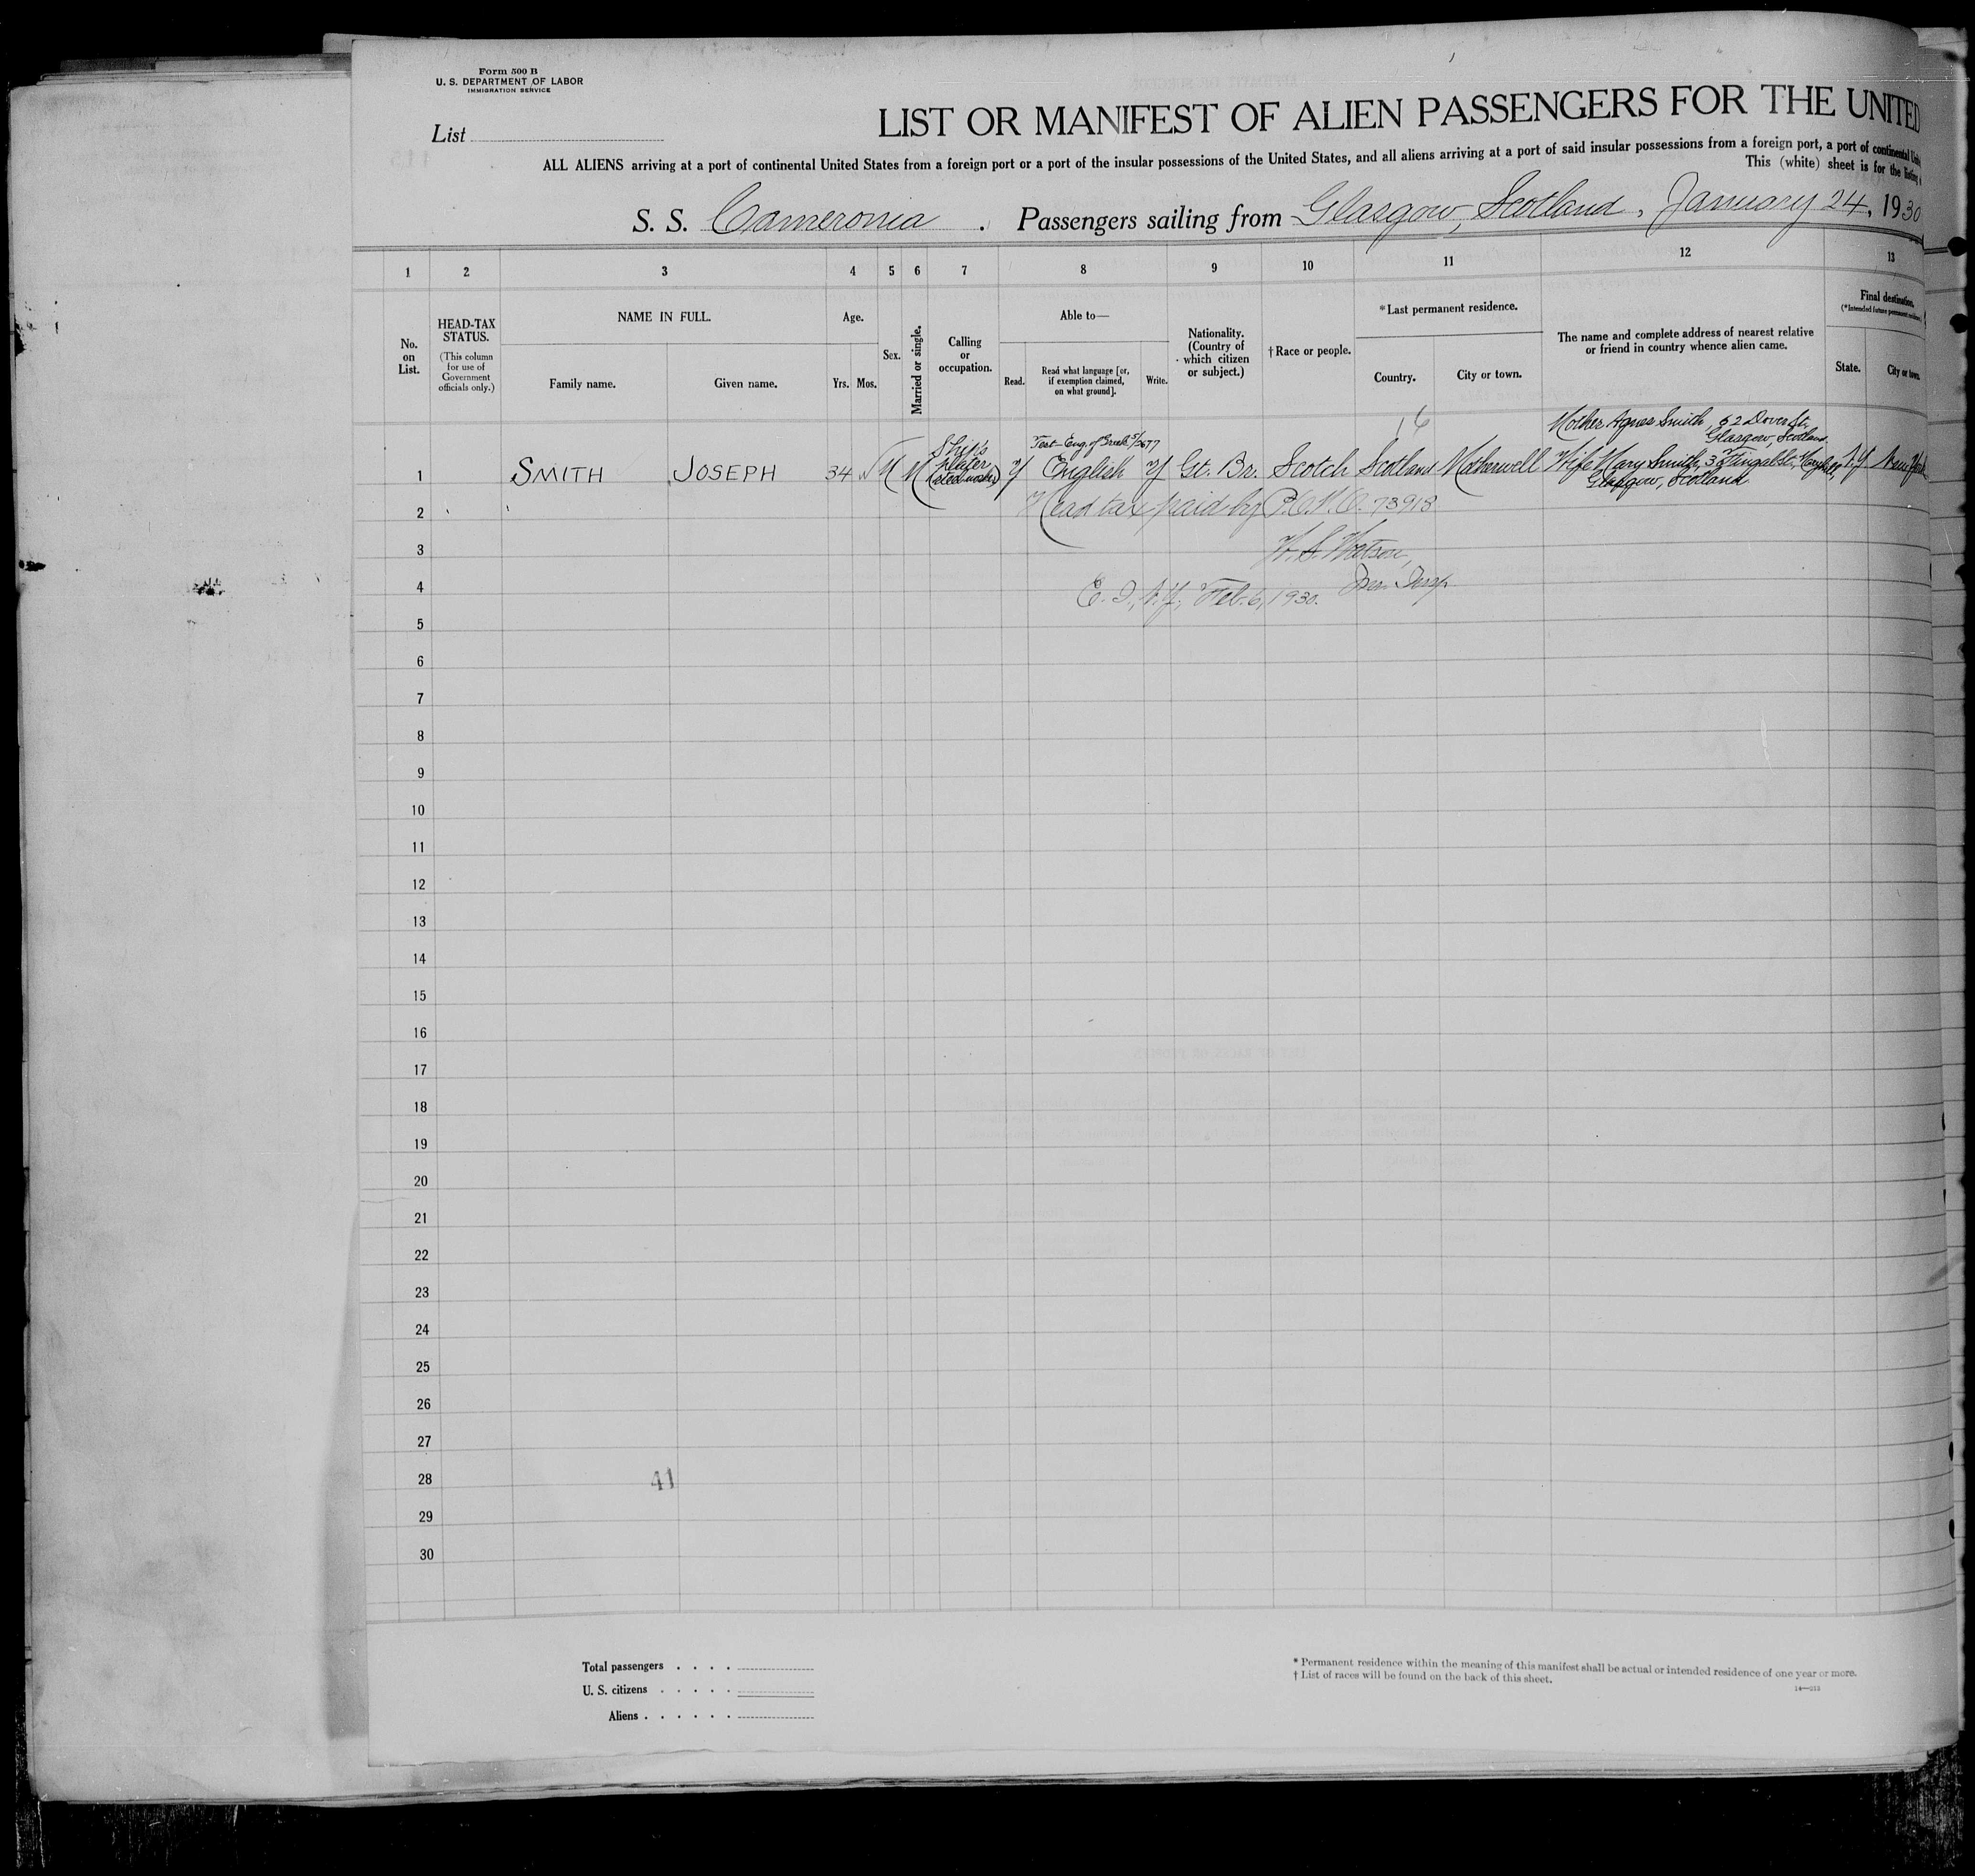 Form 500 B
U. S. DEPARTMENT OF LABOR
IMMIGRATION SERVICE
List
LIST OR MANIFEST OF ALIEN PASSENGERS FOR THE UNITED
ALL ALIENS arriving at a port of continental United States from a foreign port or a port of the insular possessions of the United States, and all aliens arriving at a port of said insular possessions from a foreign port, a port of continental
This (white) sheet is for the listing
S. S. Cameronia . Passengers sailing from Glasgow, Scotland, January 24, 1930
1 2 3 4 5 6 7 8 9 10 11 12 13
No. on List.
HEAD-TAX STATUS.
(This column for use of Government officials only.)
NAME IN FULL.
Family name. Given name.
Age.
Yrs. Mos.
Sex.
Married or single.
Calling or occupation.
Able to—
Read. Read what language [or, if exemption claimed, on what ground]. Write.
Nationality. (Country of which citizen or subject.)
† Race or people.
* Last permanent residence.
Country. City or town.
The name and complete address of nearest relative or friend in country whence alien came.
Final destination.
(* Intended future permanent residence)
State. City or town.
16
Mother Agnes Smith, 62 Dover St.,
Glasgow, Scotland.
1 SMITH JOSEPH 34 M M Ship's plater Y English Y Gt. Br. Scotch Scotland Motherwell Wife Mary Smith, N.Y. New York
Glasgow, Scotland
2 Head tax paid by 73918
3 W. S. Watson,
Insp.
4 E. I., N.Y., Feb. 6, 1930.
5
6
7
8
9
10
11
12
13
14
15
16
17
18
19
20
21
22
23
24
25
26
27
28 41
29
30
Total passengers . . . .
U. S. citizens . . . . .
Aliens . . . . . .
* Permanent residence within the meaning of this manifest shall be actual or intended residence of one year or more.
† List of races will be found on the back of this sheet.